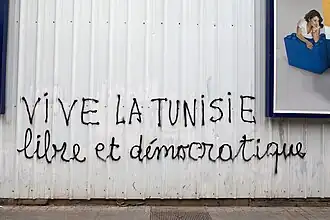 VIVE LA TUNISIE
libre et démocratique